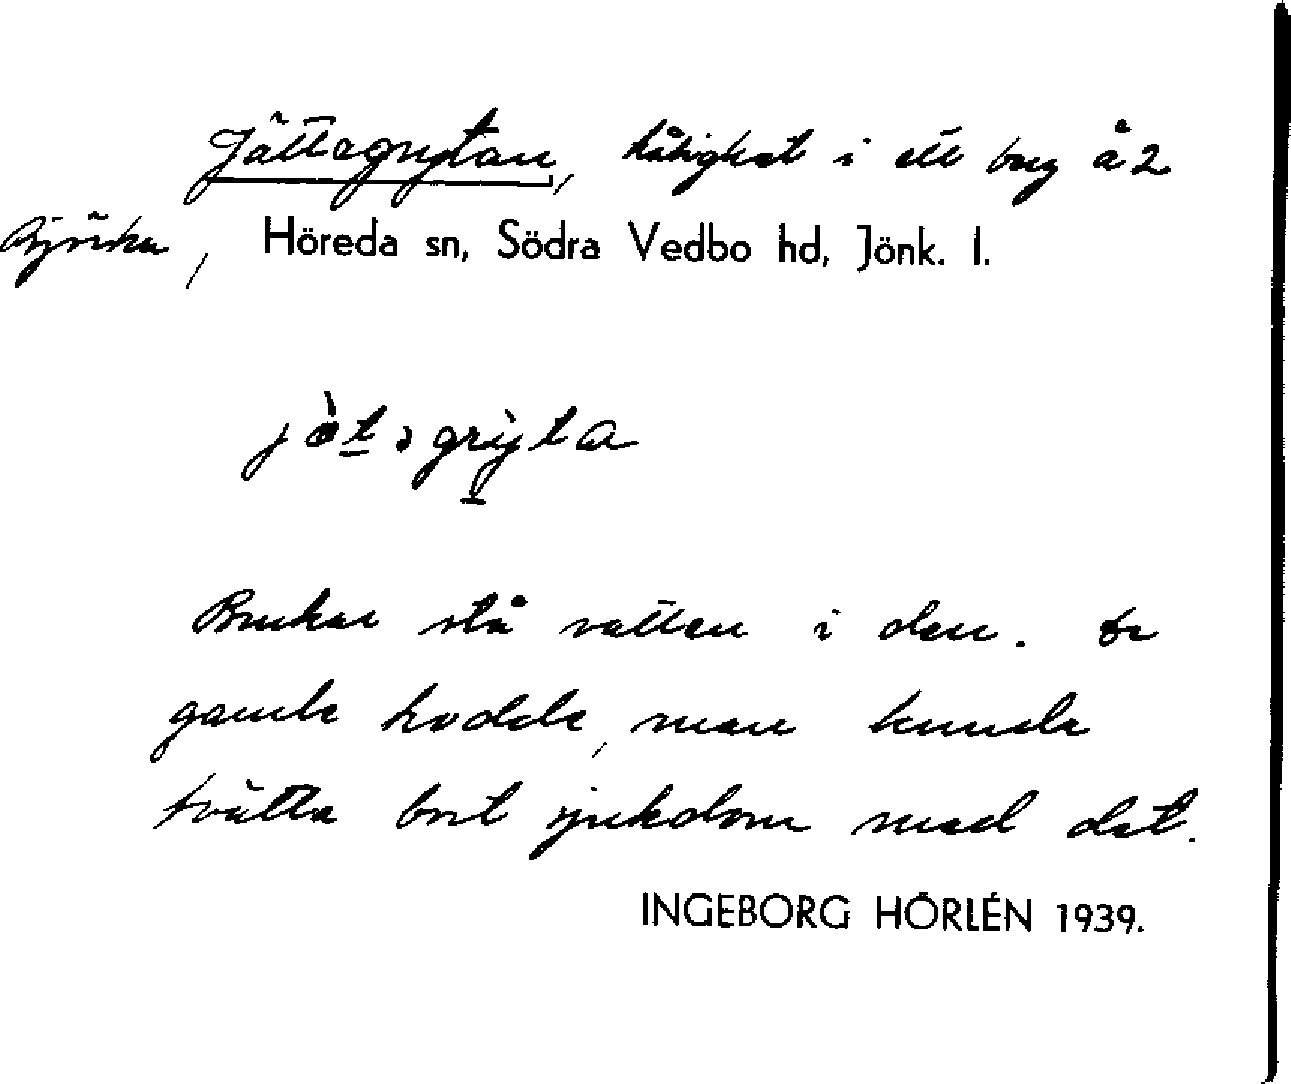 Jättegrytan, hålighet i ett berg å 2
Björka, Höreda sn, Södra Vedbo hd, Jönk. l.
Brukar stå vatten i den. De
gamle trodde, man kunde
tvätta bort sjukdom med det.
INGEBORG HÖRLÉN 1939.